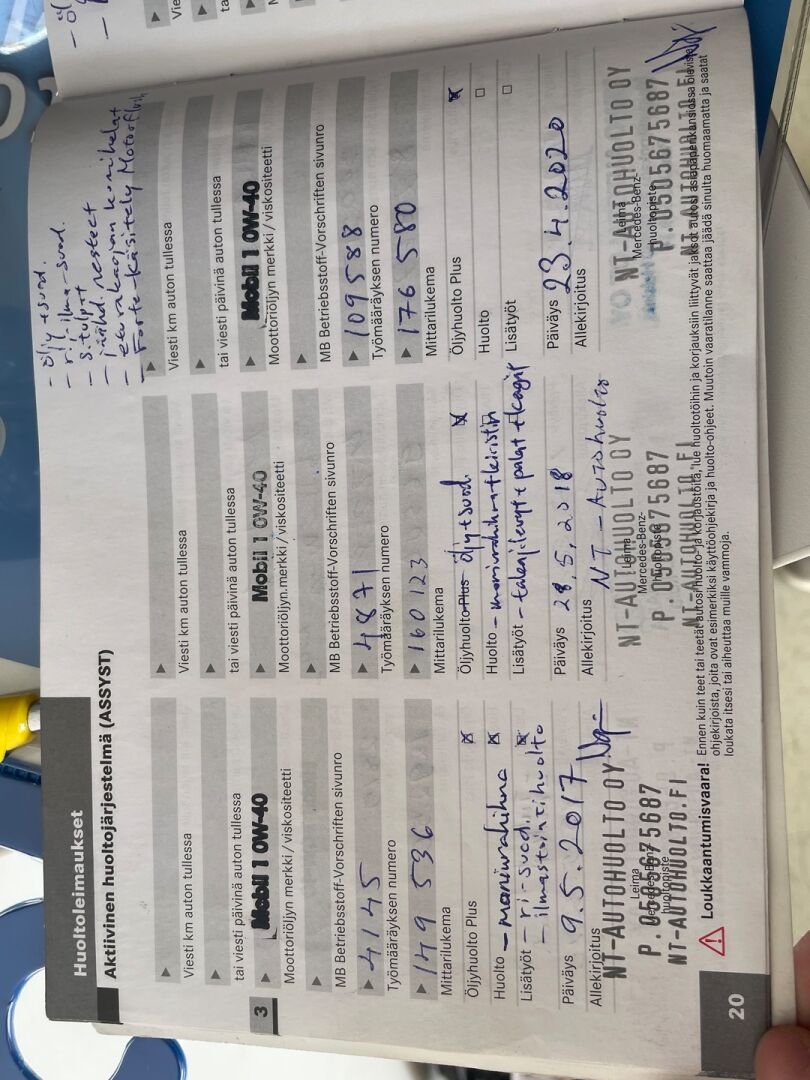 Huoltoleimaukset
Aktiivinen huoltojärjestelmä (ASSYST)
3
Viesti km auton tullessa
tai viesti päivinä auton tullessa
Mobil 1 0W-40
Moottoriöljyn merkki / viskositeetti
MB Betriebsstoff-Vorschriften sivunro
4145
Työmääräyksen numero
149 536
Mittarilukema
Öljyhuolto Plus
Huolto - moniurahihna
Lisätyöt - ri-suod.
- ilmastointihuolto
Päiväys 9.5.2017
Allekirjoitus
NT-AUTOHUOLTO OY
Leima
Mercedes-Benz-
huoltopiste
P. 0505675687
NT-AUTOHUOLTO.FI
Viesti km auton tullessa
tai viesti päivinä auton tullessa
Mobil 1 0W-40
Moottoriöljyn merkki / viskositeetti
MB Betriebsstoff-Vorschriften sivunro
4871
Työmääräyksen numero
160 123
Mittarilukema
Öljyhuolto Plus Öljy+suod.
Huolto - moniurahihna+kiristin
Lisätyöt - takajilevyt+palat
Päiväys 28.5.2018
Allekirjoitus NT-Autohuolto
NT-AUTOHUOLTO OY
Leima
Mercedes-Benz-
huoltopiste
P. 0505675687
NT-AUTOHUOLTO.FI
- öljy+suod.
- ri. ilma-suod.
- S.tulpat
- jäähd. nesteet
- Forte-käsittely
Viesti km auton tullessa
tai viesti päivinä auton tullessa
Mobil 1 0W-40
Moottoriöljyn merkki / viskositeetti
MB Betriebsstoff-Vorschriften sivunro
109588
Työmääräyksen numero
176 580
Mittarilukema
Öljyhuolto Plus
Huolto
Lisätyöt
Päiväys 23.4.2020
Allekirjoitus
NT-AUTOHUOLTO OY
Leima
Mercedes-Benz-
huoltopiste
P. 0505675687
NT-AUTOHUOLTO.FI
Loukkaantumisvaara!
Ennen kuin teet tai teetät autosi huolto- ja korjaustöitä, lue huoltotöihin ja korjauksiin liittyvät jaksot autosi asiapaperikansiossa olevista
ohjekirjoista, joita ovat esimerkiksi käyttöohjekirja ja huolto-ohjeet. Muutoin vaaratilanne saattaa jäädä sinulta huomaamatta ja saatat
loukata itsesi tai aiheuttaa muille vammoja.
20